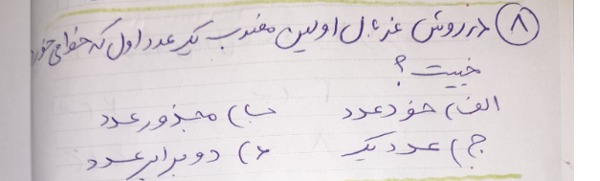 ۸) در روش غربال اولین مضرب یک عدد اول که خط می خورد
چیست ؟
الف) خود عدد ب) مجذور عدد
ج) عدد یک د) دو برابر عدد